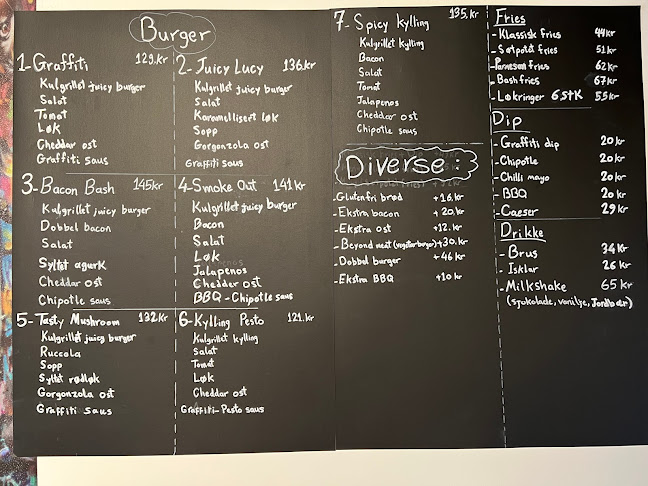 Burger
1-Graffiti 129.kr
Kulgrillet juicy burger
Salat
Tomat
Løk
Cheddar ost
Graffiti saus
2-Juicy Lucy 136.kr
Kulgrillet juicy burger
Salat
Karamellisert løk
Sopp
Gorgonzola ost
Graffiti saus
3-Bacon Bash 145kr
Kulgrillet juicy burger
Dobbel bacon
Salat
Syltet agurk
Cheddar ost
Chipotle saus
4-Smoke Out 141kr
Kulgrillet juicy burger
Bacon
Salat
Løk
Jalapenos
Chedder ost
BBQ-Chipotle saus
5-Tasty Mushroom 132kr
Kulgrillet juicy burger
Ruccola
Sopp
Syltet rødløk
Gorgonzola ost
Graffiti saus
6-Kylling Pesto 121.kr
Kulgrillet kylling
Salat
Tomat
Løk
Cheddar ost
Graffiti-Pesto saus
7-Spicy kylling 135.kr
Kulgrillet kylling
Bacon
Salat
Tomat
Jalapenos
Cheddar ost
Chipotle saus
Diverse:
-Glutenfri brød +16.kr
-Ekstra bacon +20.kr
-Ekstra ost +12.kr
-Beyond meat (vegetar burger) +30.kr
-Dobbel burger +46 kr
-Ekstra BBQ +10 kr
Fries
-Klassisk fries 44kr
-Søtpotet fries 51kr
-Parmesan fries 62kr
-Bash fries 67kr
-Løkringer 6 STK 55kr
Dip
-Graffiti dip 20kr
-Chipotle 20kr
-Chilli mayo 20kr
-BBQ 20kr
-Caeser 29kr
Drikke
-Brus 34kr
-Isklar 26kr
-Milkshake 65kr
(sjokolade, vanilje, Jordbær)